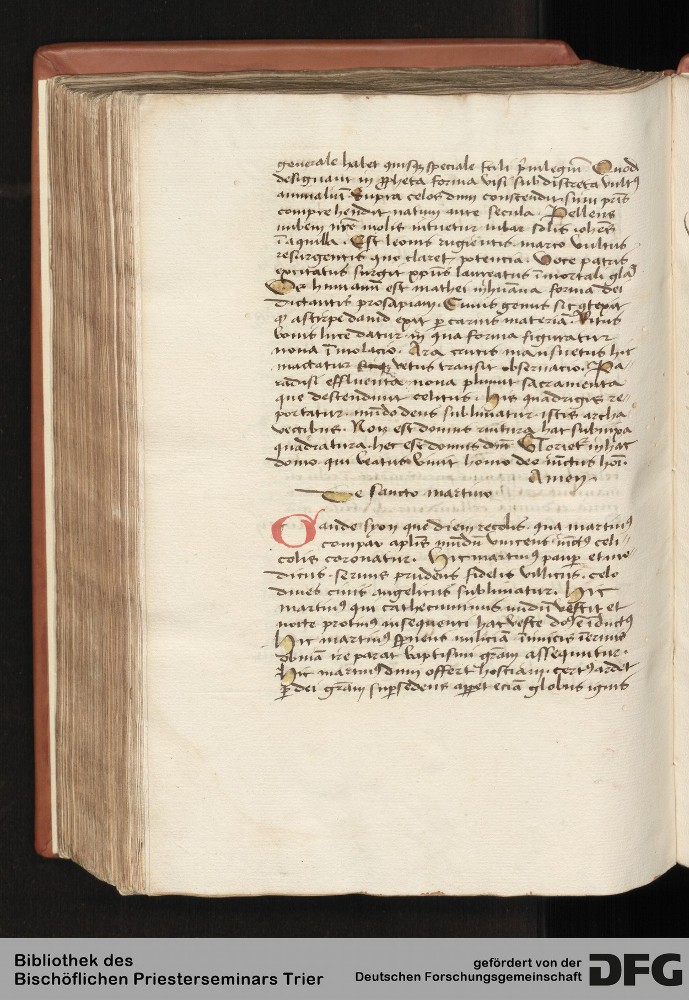 generale habet quisq speciale stili priuilegiū Quod
designant in ppheta forma visi sub discreta vultꝯ
animaliū Supra celos dum conscendit sūmi pr̄is
comprehendit natum ante secula Pellens
nubem nr̄e molis intuetur iubar solis iohes
ī aquilla. Est leonis rugientis marco vultus
resurgentis quo claret potencia. Voce patris
excitatus surgit xp̄us laureatus īmortali gl̄a
Os humanū est mathei in hūana forma dei
dictantis prosapiam. Cuius genus sic ꝯtexit
q̄ a stirpe dauid exit p carnis materiā. Ritus
bouis luce datur in qua forma figuratur
noua īmolacio. Ara crucis mansuetus hic
mactatur vetus transit obseruacio. Pa-
radisi effluenta noua pluunt sacramenta
que descendunt celitus. His quadrigis re-
portatur mūdo deus sublimatur istis archa
vectibus. Non est domus ruitura hac subnixa
quadratura hec est domus dn̄i Glorieṫ in hac
domo qui beatus viuit homo deo iūctus hōī.
Amen.
De sancto martino
Gaude syon que diem recolis qua martinꝯ
compar apl̄is mūdū vincens iūctꝯ celi-
colis coronatur. Hic martinꝯ paup et mo-
dicus seruus prudens fidelis villicus. celo
diues ciuis angelicus sublimatur. Hic
martinꝯ qui cathecuminus nudū vestit et
nocte protinꝯ insequenti hac veste
Hic martinꝯ spnens miliciā inimicis inermis
obuiā ire parat baptismi grām assequitur.
Hic martinus dum offert hostiam ardet
p dei grām supsedens appet eciā globus ignis
Bibliothek des
Bischöflichen Priesterseminars Trier
gefördert von der
Deutschen Forschungsgemeinschaft
DFG